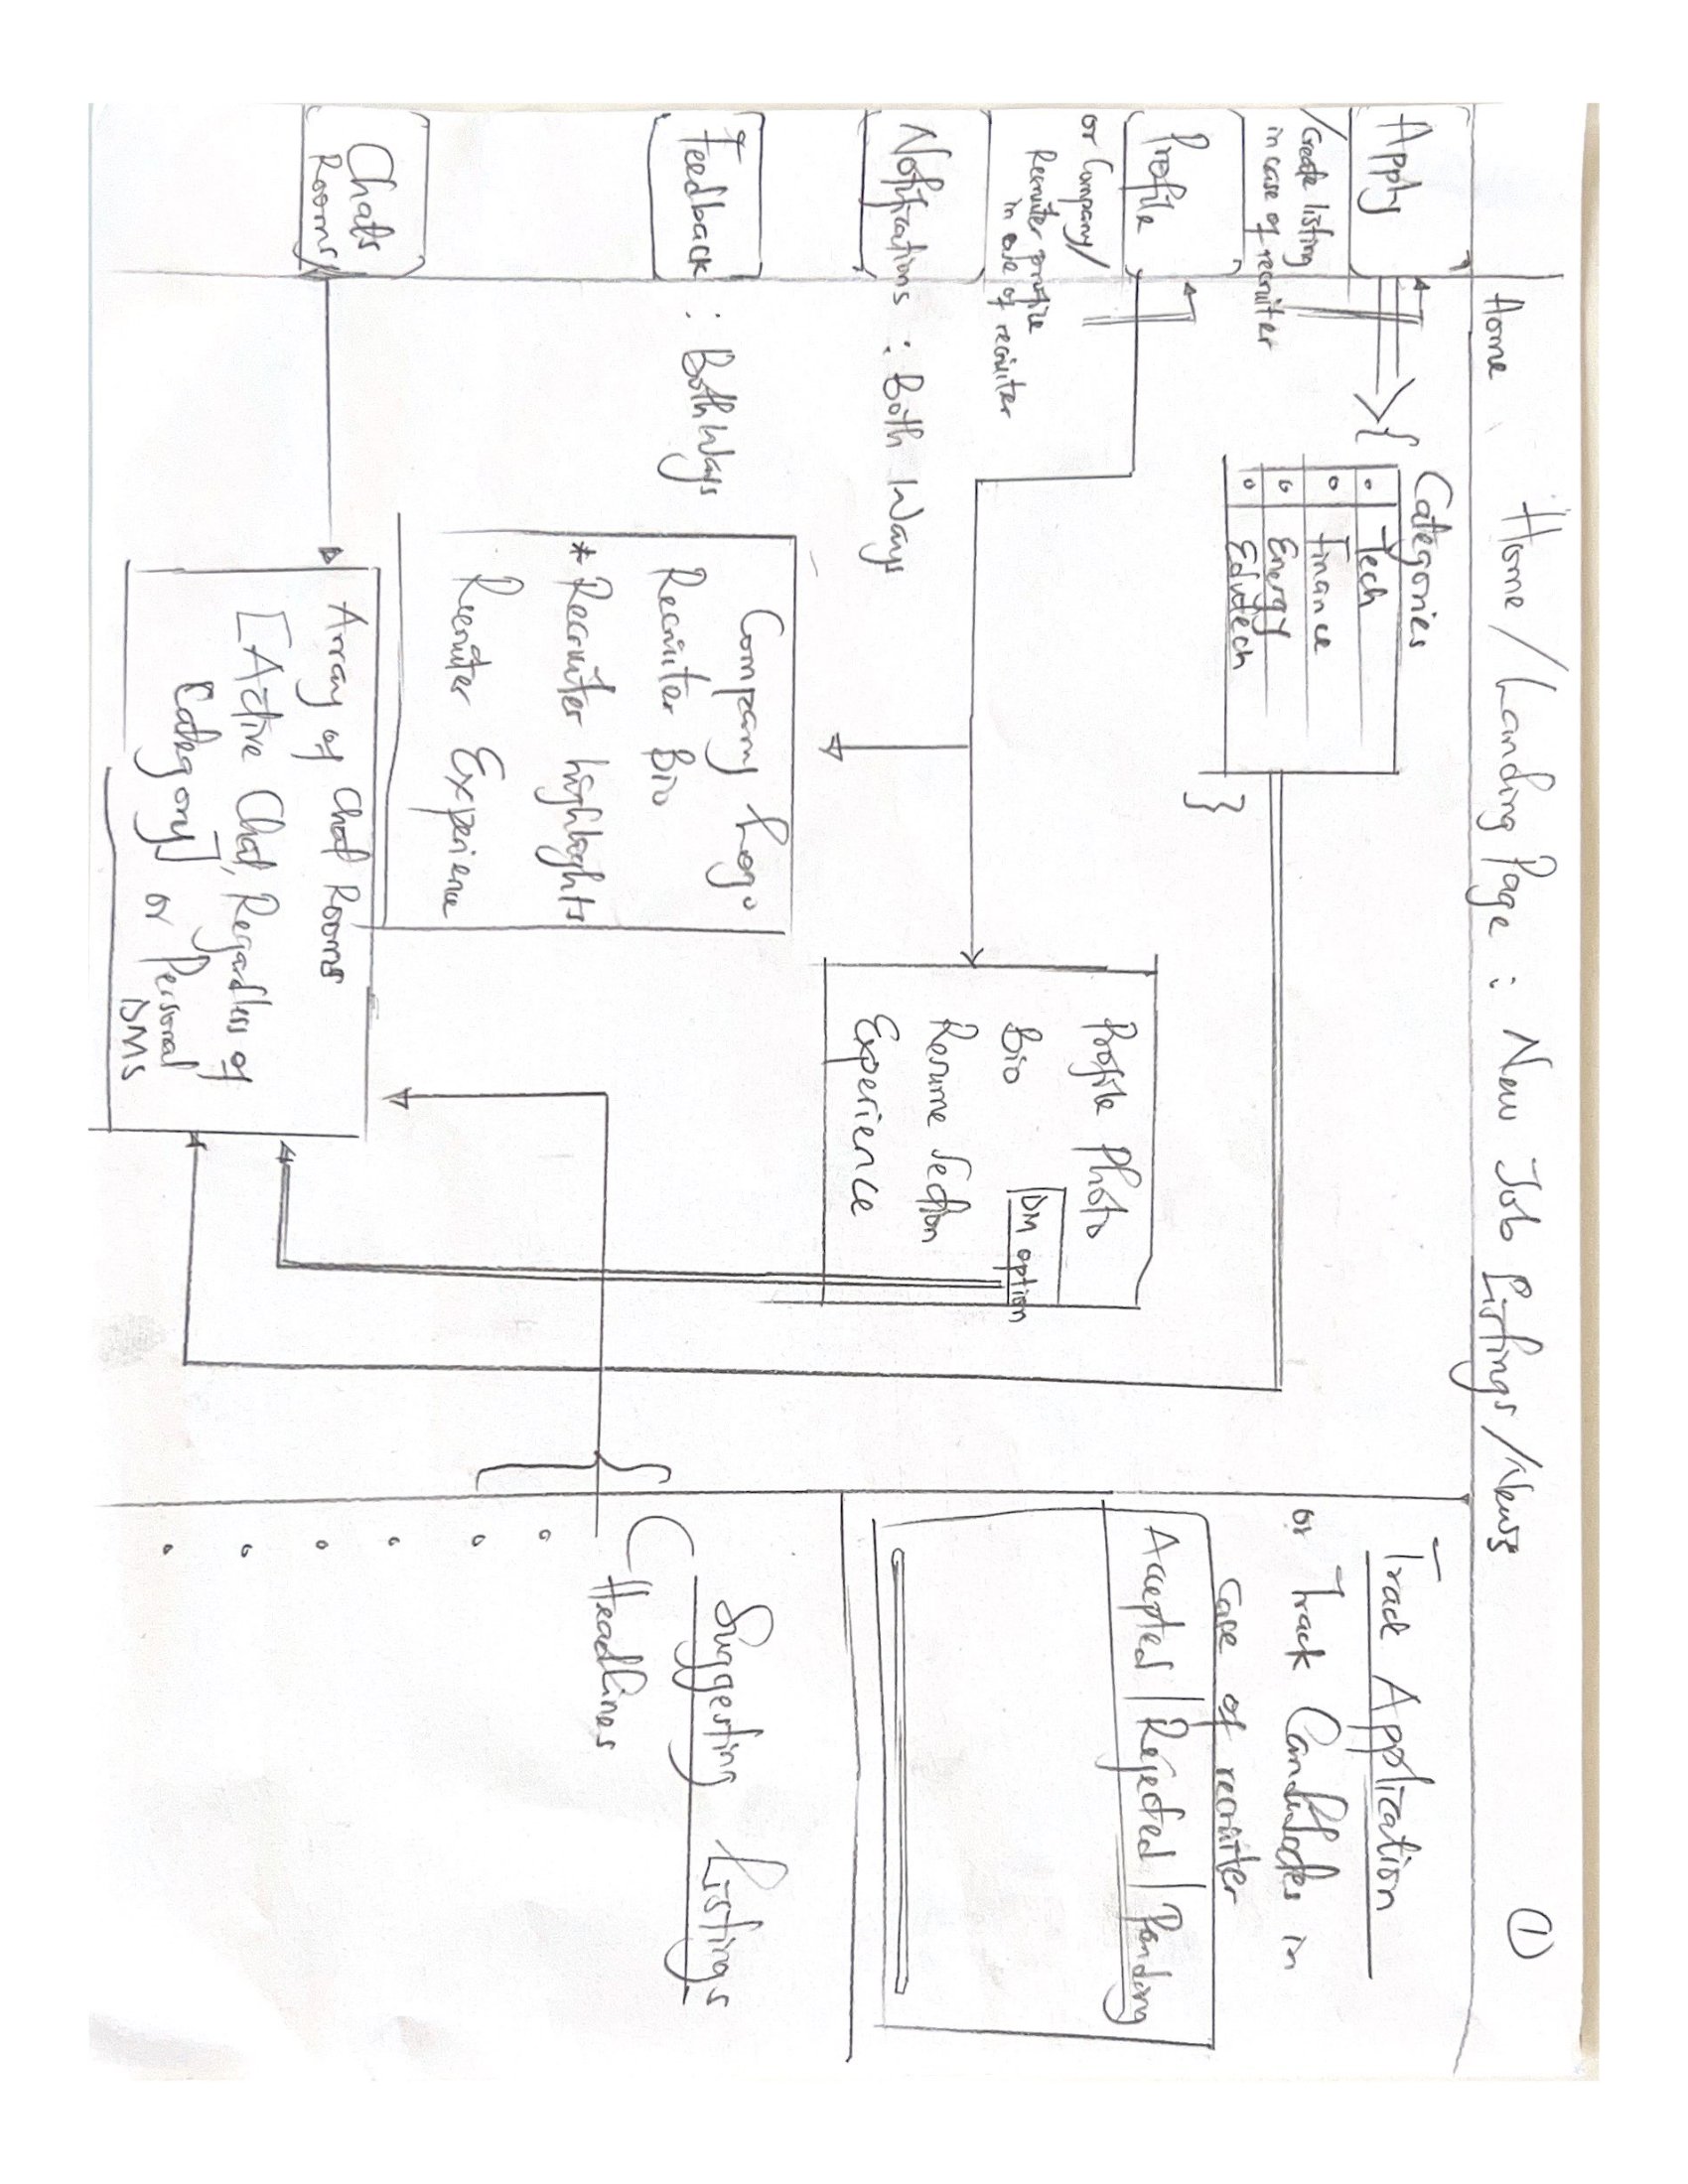 Home
Home / Landing Page : New Job Listings / News
①
Apply
/ Create listing
in case of recruiter
Profile
or Company /
Recruiter profile
in case of recruiter
Notifications : Both Ways
Feedback : Both Ways
Chats
Rooms
Categories
{
° Tech
° Finance
° Energy
° Edutech
}
Profile Photo
Bio
DM option
Resume Section
Experience
Company Logo
Recruiter Bio
* Recruiter highlights
Recruiter Experience
Array of Chat Rooms
[Active Chat, Regardless of
Category] or Personal
DMs
Track Application
or Track Candidades in
Case of recruiter
Accepted | Rejected | Pending
Suggesting Listings
Headlines